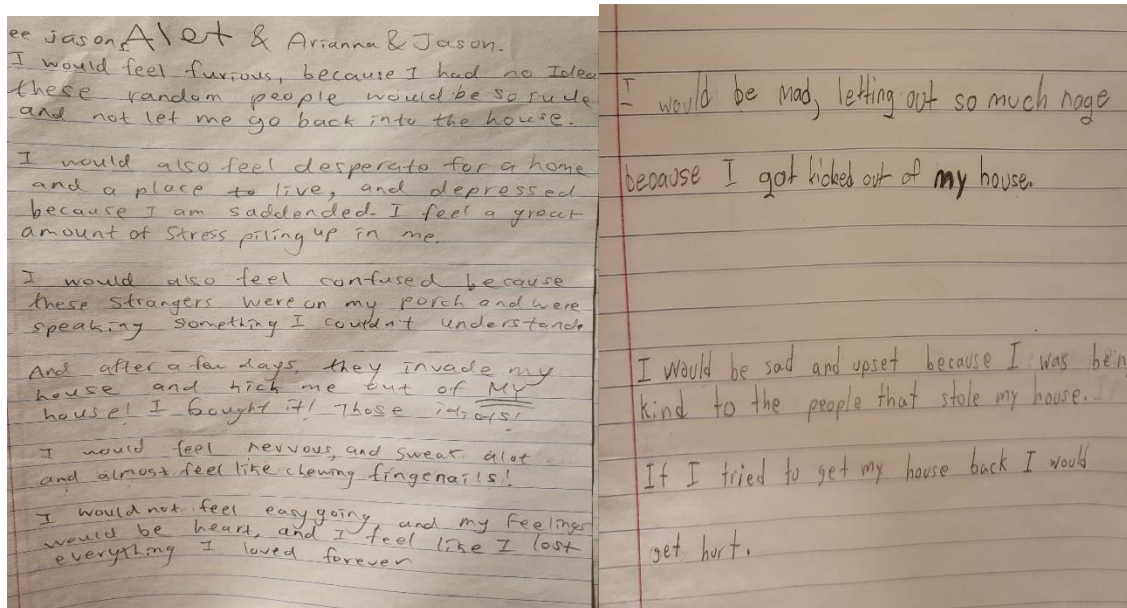 ee jason, Alet & Arianna & Jason.
I would feel furious, because I had no Idea
these random people would be so rude
and not let me go back into the house.
I would also feel desperate for a home
and a place to live, and depressed
because I am saddended. I feel a great
amount of stress piling up in me.
I would also feel confused because
these strangers were on my porch and were
speaking something I couldn't understand.
And after a few days, they invade my
house and kick me out of MY
house! I bought it! Those idiots!
I would feel nervous, and sweat alot
and almost feel like chewing fingenails!
I would not feel easygoing, and my feelings
would be heart, and I feel like I lost
everything I loved forever
I would be mad, letting out so much rage
because I got kicked out of my house.
I would be sad and upset because I was bein
kind to the people that stole my house.
If I tried to get my house back I would
get hurt.